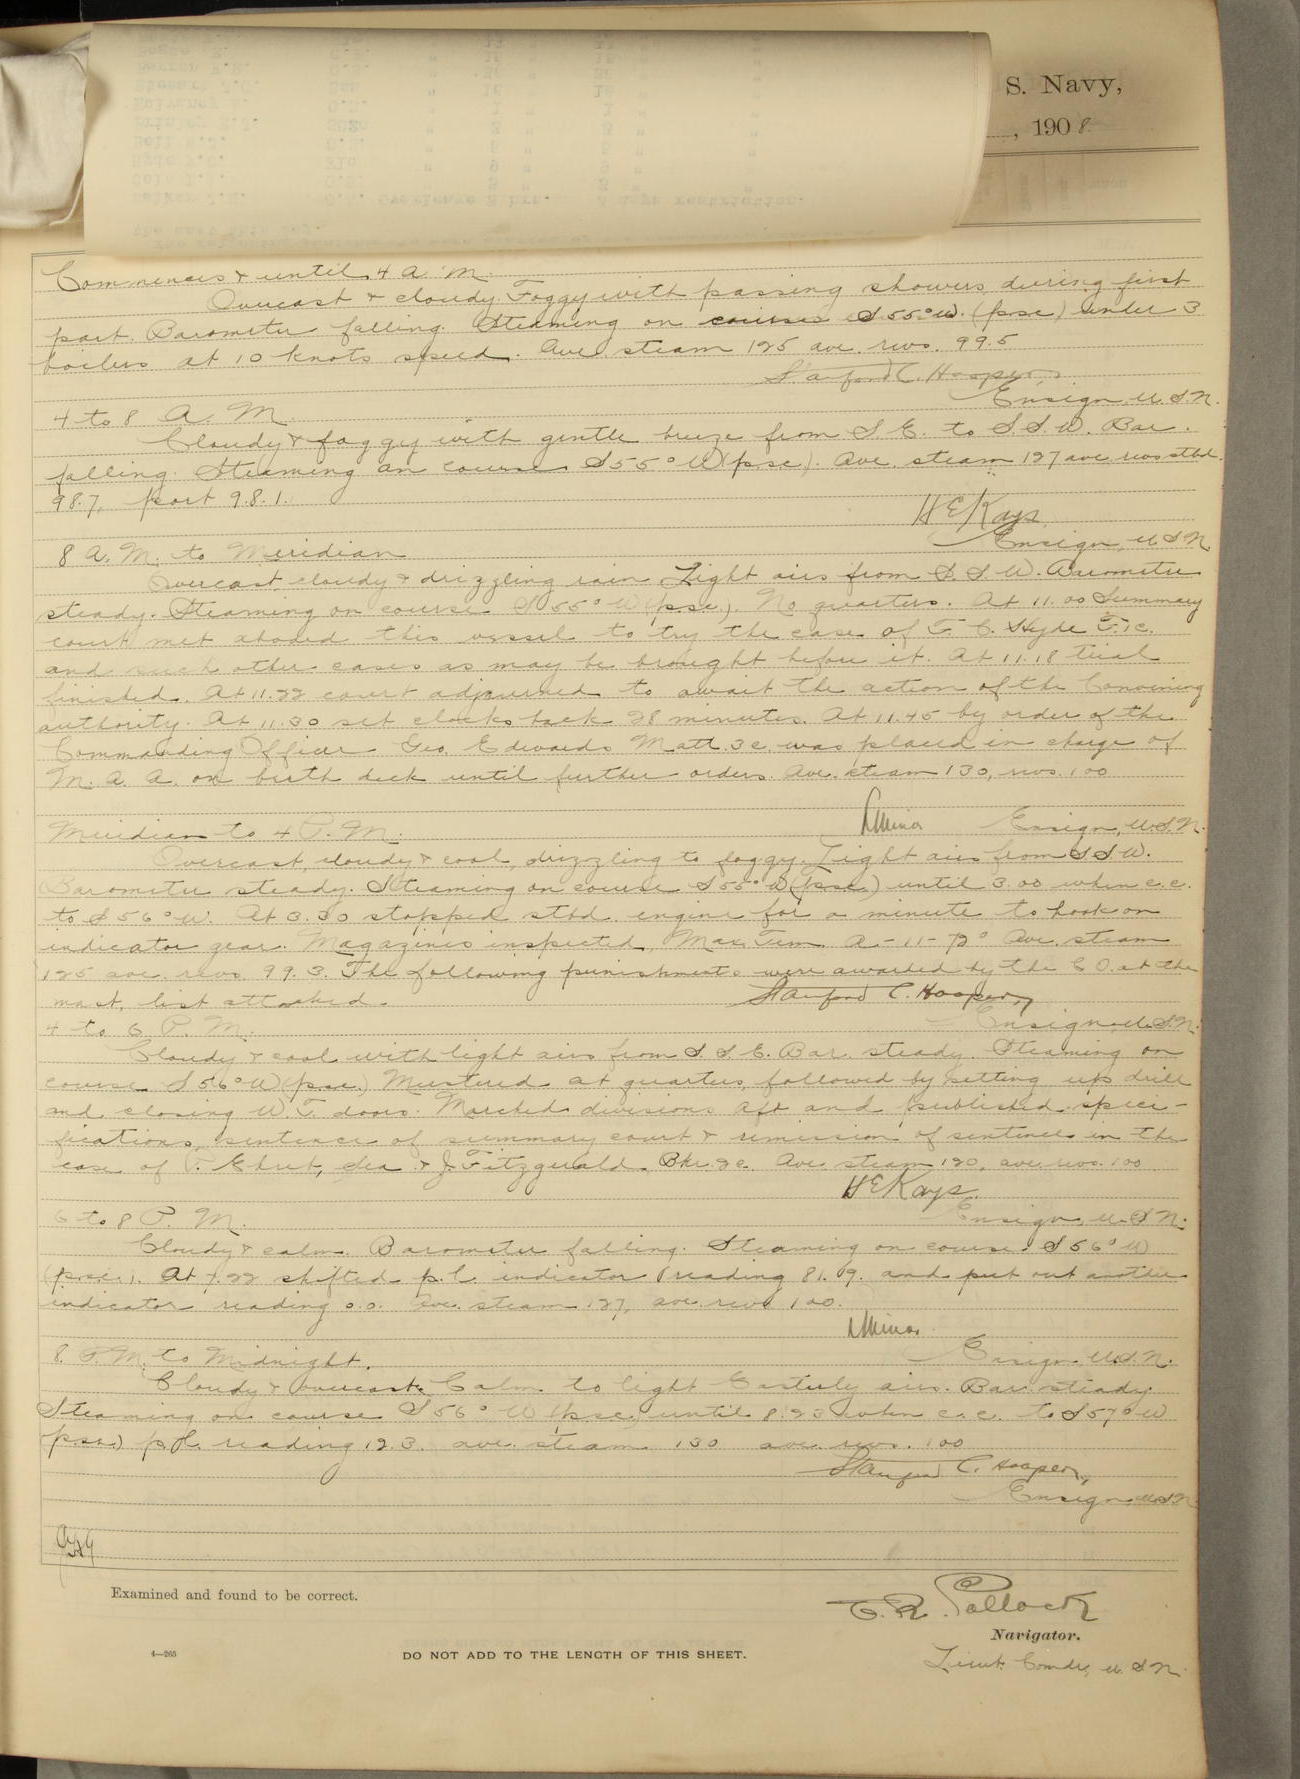 S. Navy,
, 1908.
Commences & until 4 A. M.
Overcast & cloudy. Foggy with passing showers during first
part. Barometer falling. Steaming on course S 55° W. (psc) under 3
boilers at 10 knots speed. Ave steam 125 ave. revs. 99.5
Stanford C. Hooper,
Ensign U.S.N.
4 to 8 A. M.
Cloudy & foggy with gentle breeze from S E. to S. S. W. Bar.
falling. Steaming on course S 55° W (psc). Ave. steam 127 ave revs stbd.
98.7, port 98.1.
H E Kays
Ensign, U S N.
8 A. M. to Meridian
Overcast cloudy & drizzling rain. Light airs from S. S. W. Barometer
steady. Steaming on course S 55° W (psc.). No quarters. At 11.00 Summary
court met aboard this vessel to try the case of F. C. Hyde F. 1c.
and such other cases as may be brought before it. At 11.18 trial
finished. At 11.22 court adjourned to await the action of the Convening
authority. At 11.30 set clocks back 28 minutes. At 11.45 by order of the
Commanding Officer Geo. Edwards Matt. 3c was placed in charge of
M. A. A. on birth deck until further orders. Ave. steam 130, revs. 100
Minor Ensign, U.S.N.
Meridian to 4 P. M.
Overcast, cloudy & cool, drizzling to foggy. Light airs from S S W.
Barometer steady. Steaming on course S 55° W (psc) until 3.00 when c.c.
to S 56° W. At 3.30 stopped stbd. engine for a minute to hook on
indicator gear. Magazines inspected, Max. Tem. A-11-72° Ave. steam
125 ave. revs. 99.3. The following punishments were awarded by the C O. at the
mast, list attached.
Stanford C. Hooper,
Ensign U.S.N.
4 to 6 P. M.
Cloudy & cool with light airs from S. S. E. Bar. steady. Steaming on
course S 56° W (psc.) Mustered at quarters, followed by setting up drill
and closing W. T. doors. Marched divisions aft and published speci-
fications, sentence of summary court & remission of sentence in the
case of Ehret, Sea & J. Fitzgerald. Bkr. 2c. Ave steam 120, ave. revs. 100
H E Kays.
Ensign, U. S N.
6 to 8 P. M.
Cloudy & calm. Barometer falling. Steaming on course S 56° W
(psc.). At 7.22 shifted p.l. indicator (reading 81.09. and put out another
indicator reading 0.0. Ave. steam 127, ave. revs 100.
Minor
Ensign U.S.N.
8. P. M. to Midnight.
Cloudy & overcast. Calm to light Easterly airs. Bar. steady
Steaming on course S 56° W (psc) until 8.23 when c.c. to S 57° W
(psc) p.l. reading 12.3. ave. steam 130 ave. revs. 100
Stanford C. Hooper,
Ensign, U.S.N.
Examined and found to be correct.
C. R. Pollock
Navigator.
4—265
DO NOT ADD TO THE LENGTH OF THIS SHEET.
Lieut. Comdr, U. S N.